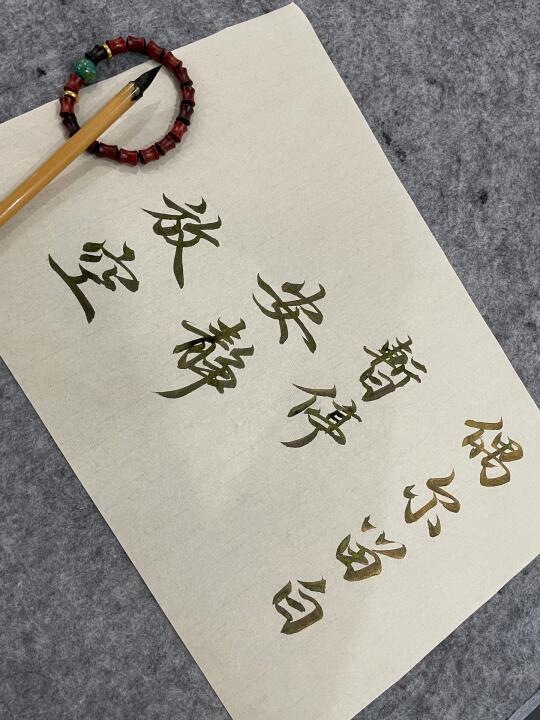 偶尔留白
暂停
安静
放空